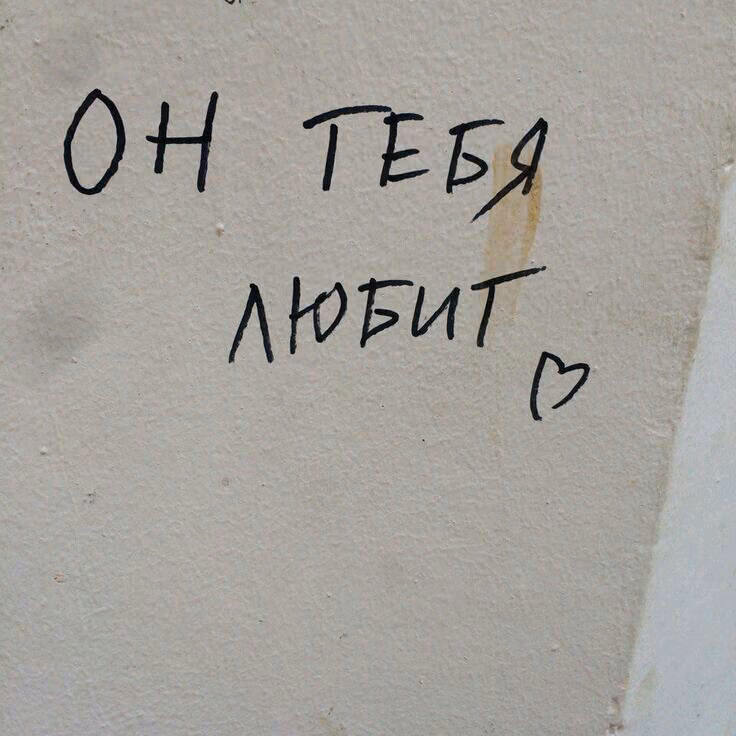 ОН ТЕБЯ
ЛЮБИТ